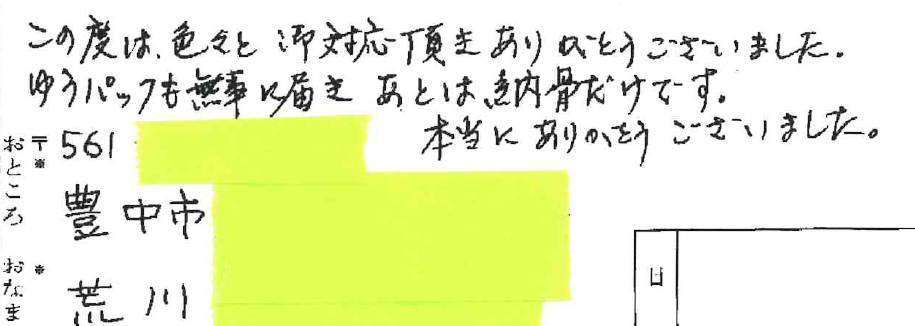 この度は、色々と御対応頂きありがとうございました。
ゆうパックも無事に届き あとは、納骨だけです。
本当にありがとうございました。
〒※ 561
おところ
豊中市
※
おなま
荒川
日